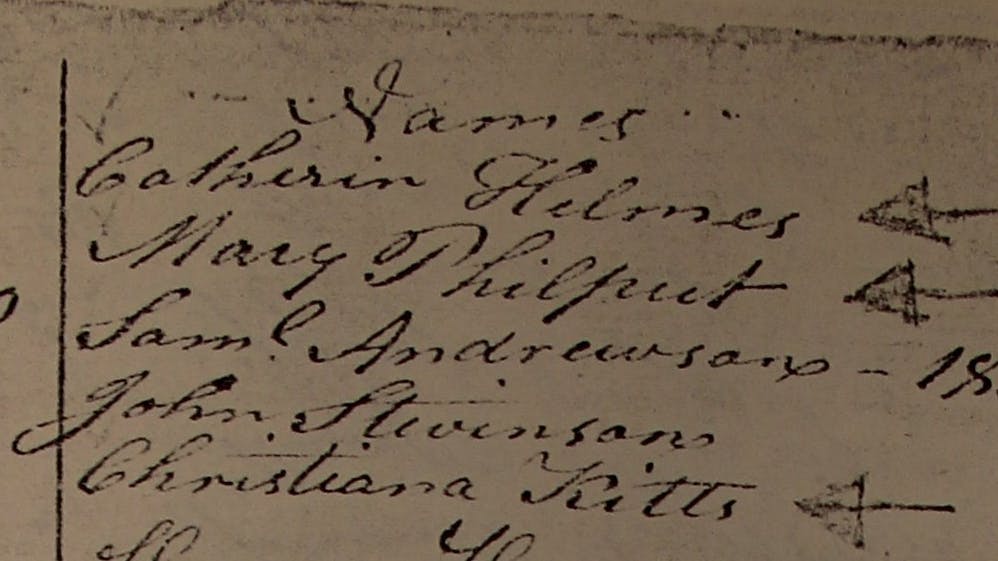 Names
Catherin Hilmes
Mary Philput
Saml. Andrewson - 18
John Stevinson
Christiana Kitts